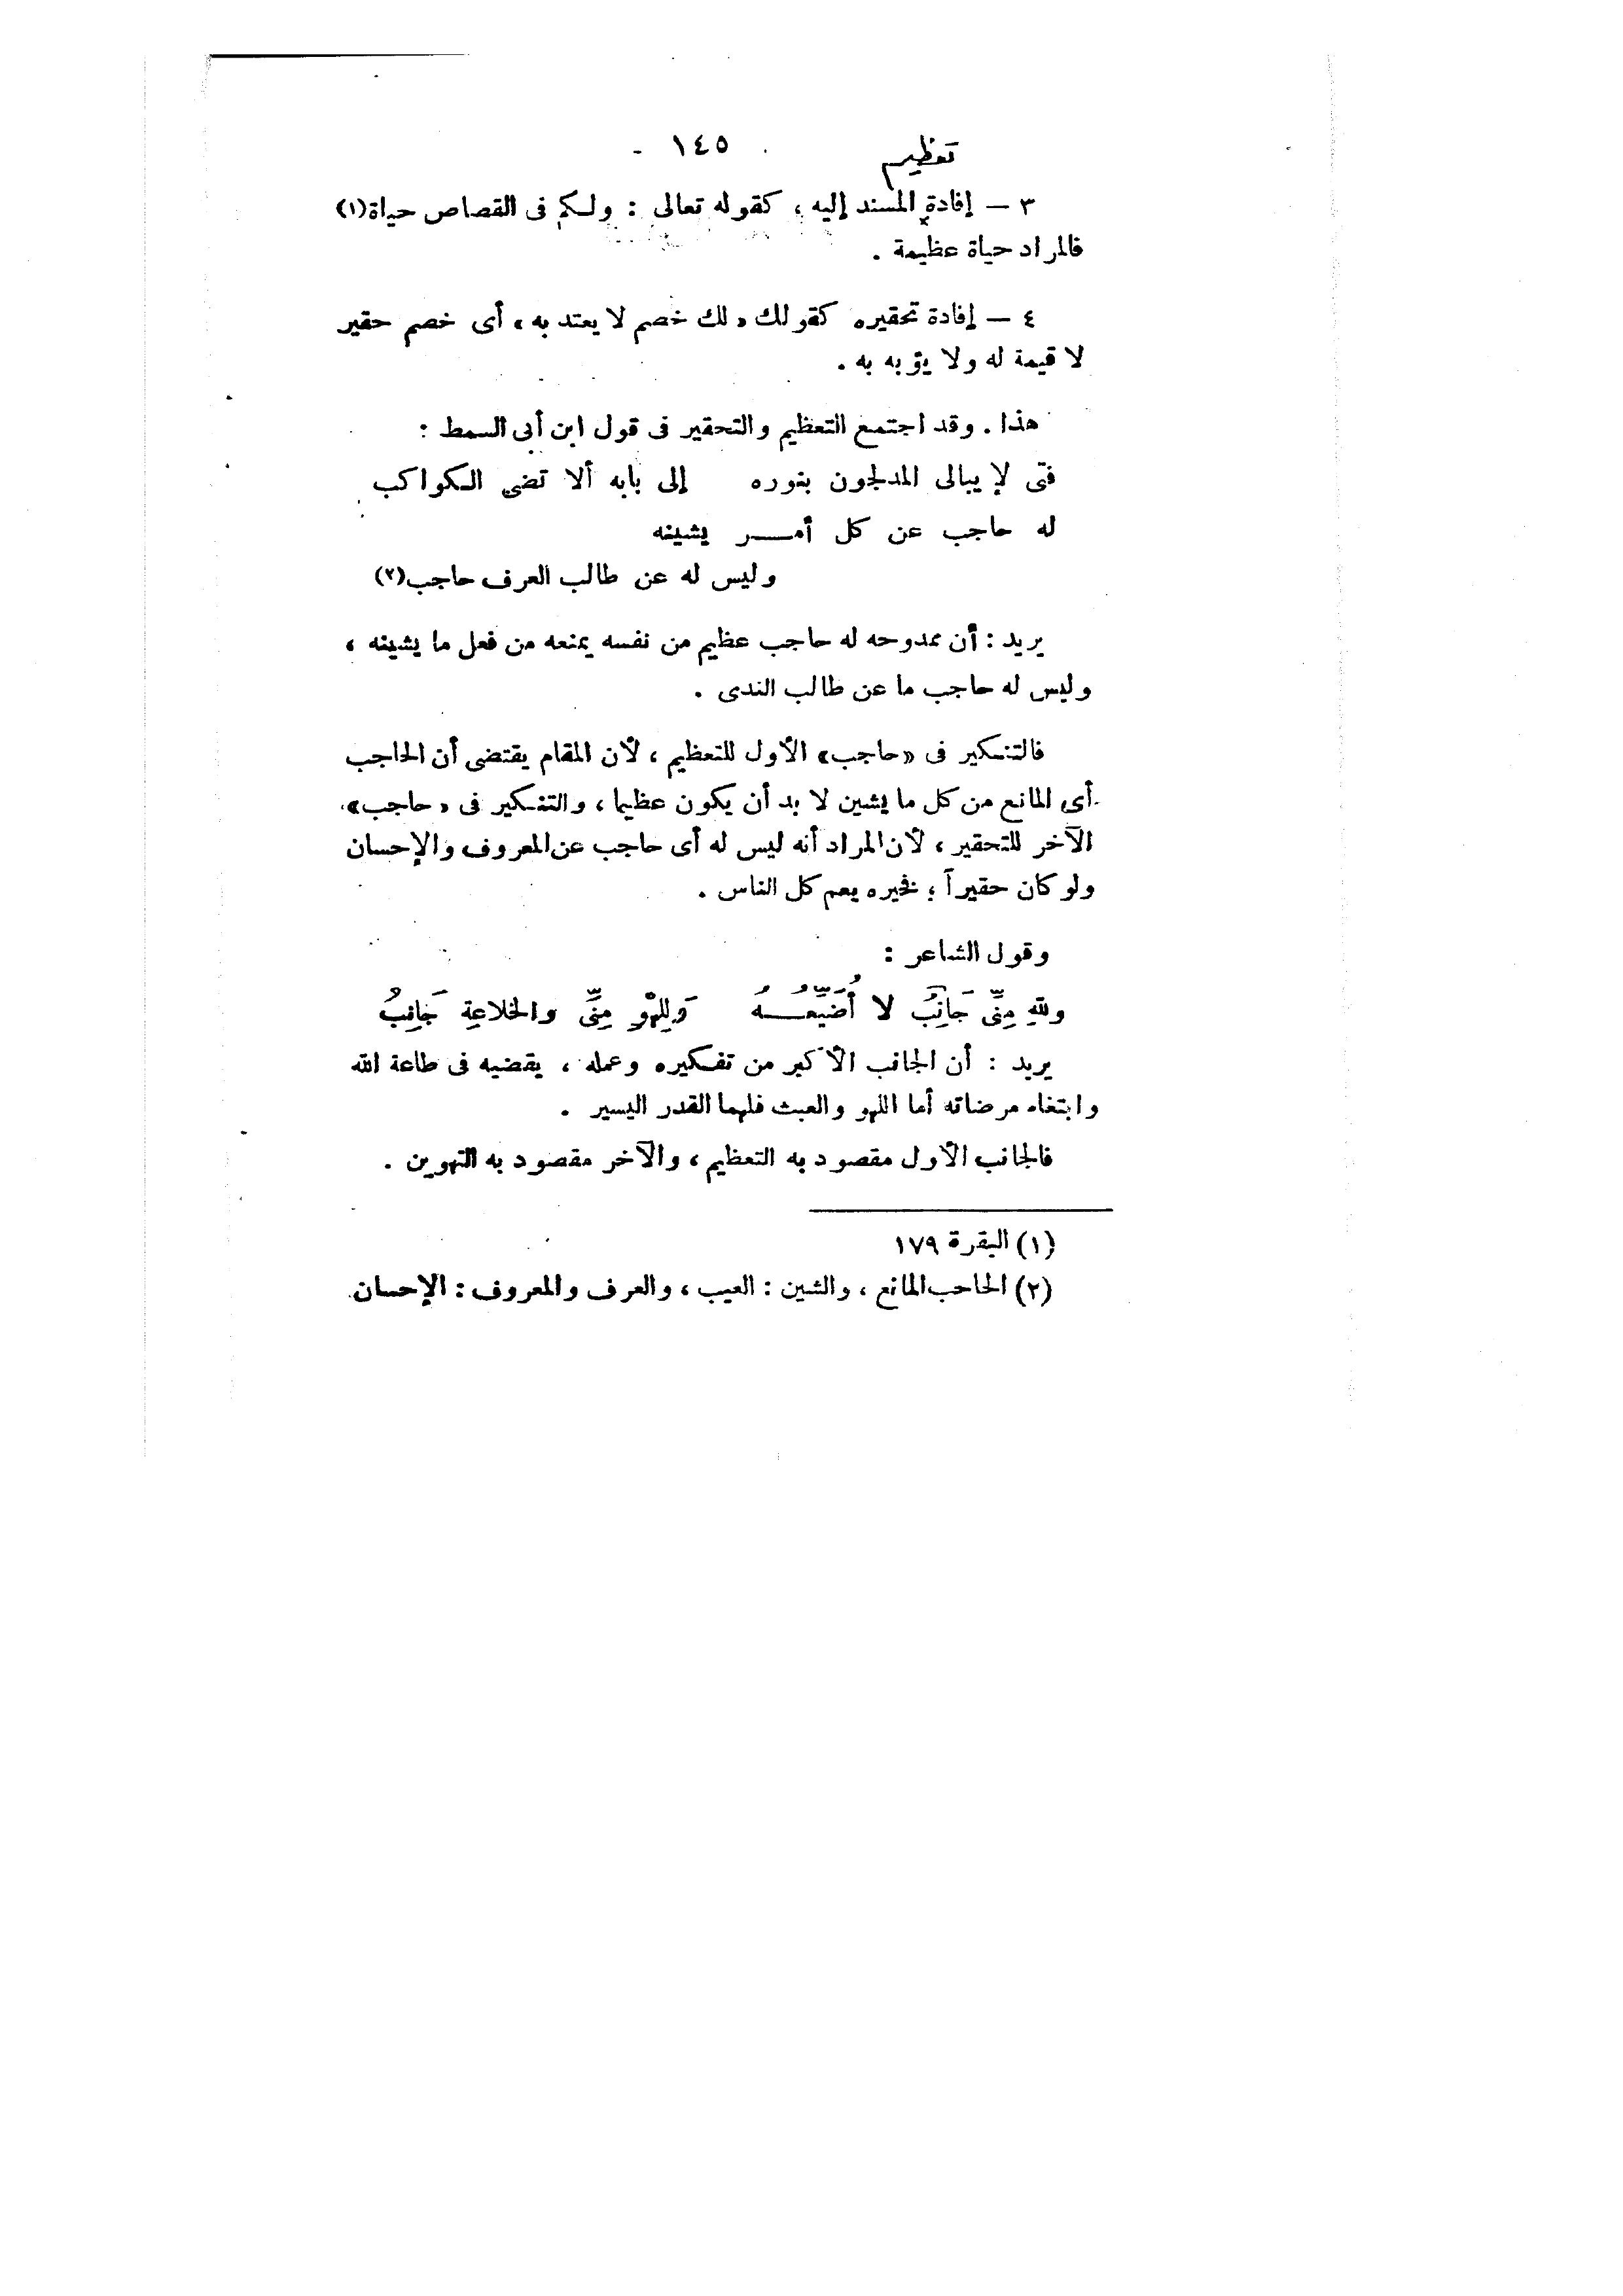 - ١٤٥ -
تعظيم
٣ — إفادة المسند إليه ، كقوله تعالى : ولكم فى القصاص حياة(١)
فالمراد حياة عظيمة .
٤ — إفادة تحقيره كقولك « لك خصم لا يعتد به » أى خصم حقير
لا قيمة له ولا يؤبه به .
هذا . وقد اجتمع التعظيم والتحقير فى قول ابن أبى السمط :
فتى لا يبالى المدلجون بنوره إلى بابه ألا تضىء الكواكب
له حاجب عن كل أمـــر يشينه
وليس له عن طالب العرف حاجب(٢)
يريد : أن ممدوحه له حاجب عظيم من نفسه يمنعه من فعل ما يشينه ،
وليس له حاجب ما عن طالب الندى .
فالتنكير فى «حاجب» الأول للتعظيم ، لأن المقام يقتضى أن الحاجب
أى المانع من كل ما يشين لا بد أن يكون عظيما ، والتنكير فى « حاجب»
الآخر للتحقير ، لأن المراد أنه ليس له أى حاجب عن المعروف والإحسان
ولو كان حقيراً ؛ فخيره يعم كل الناس .
وقول الشاعر :
وللهِ مِنِّى جَانِبٌ لا أُضَيِّعُــــهُ وَلِلهْوِ مِنِّى والخلاعةِ جَانِبُ
يريد : أن الجانب الأكبر من تفكيره وعمله ، يقضيه فى طاعة الله
وابتغاء مرضاته أما اللهو والعبث فلهما القدر اليسير .
فالجانب الأول مقصود به التعظيم ، والآخر مقصود به التهوين .
(١) البقرة ١٧٩
(٢) الحاجب المانع ، والشين : العيب ، والعرف والمعروف : الإحسان.